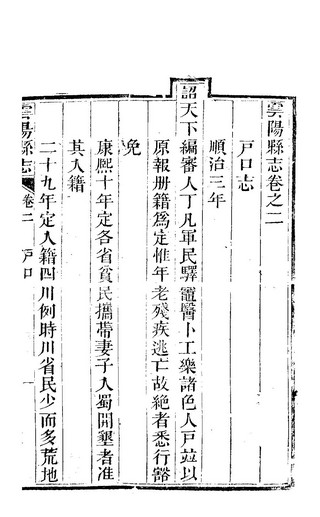 雲陽縣志卷之二
戶口志
順治三年
詔天下編審人丁凡軍民驛竈醫卜工樂諸色人戶並以
原報册籍爲定惟年老殘疾逃亡故絶者悉行豁
免
康熙十年定各省貧民攜帶妻子入蜀開墾者准
其入籍
二十九年定入籍四川例時川省民少而多荒地
雲陽縣志
卷二
戶口
一